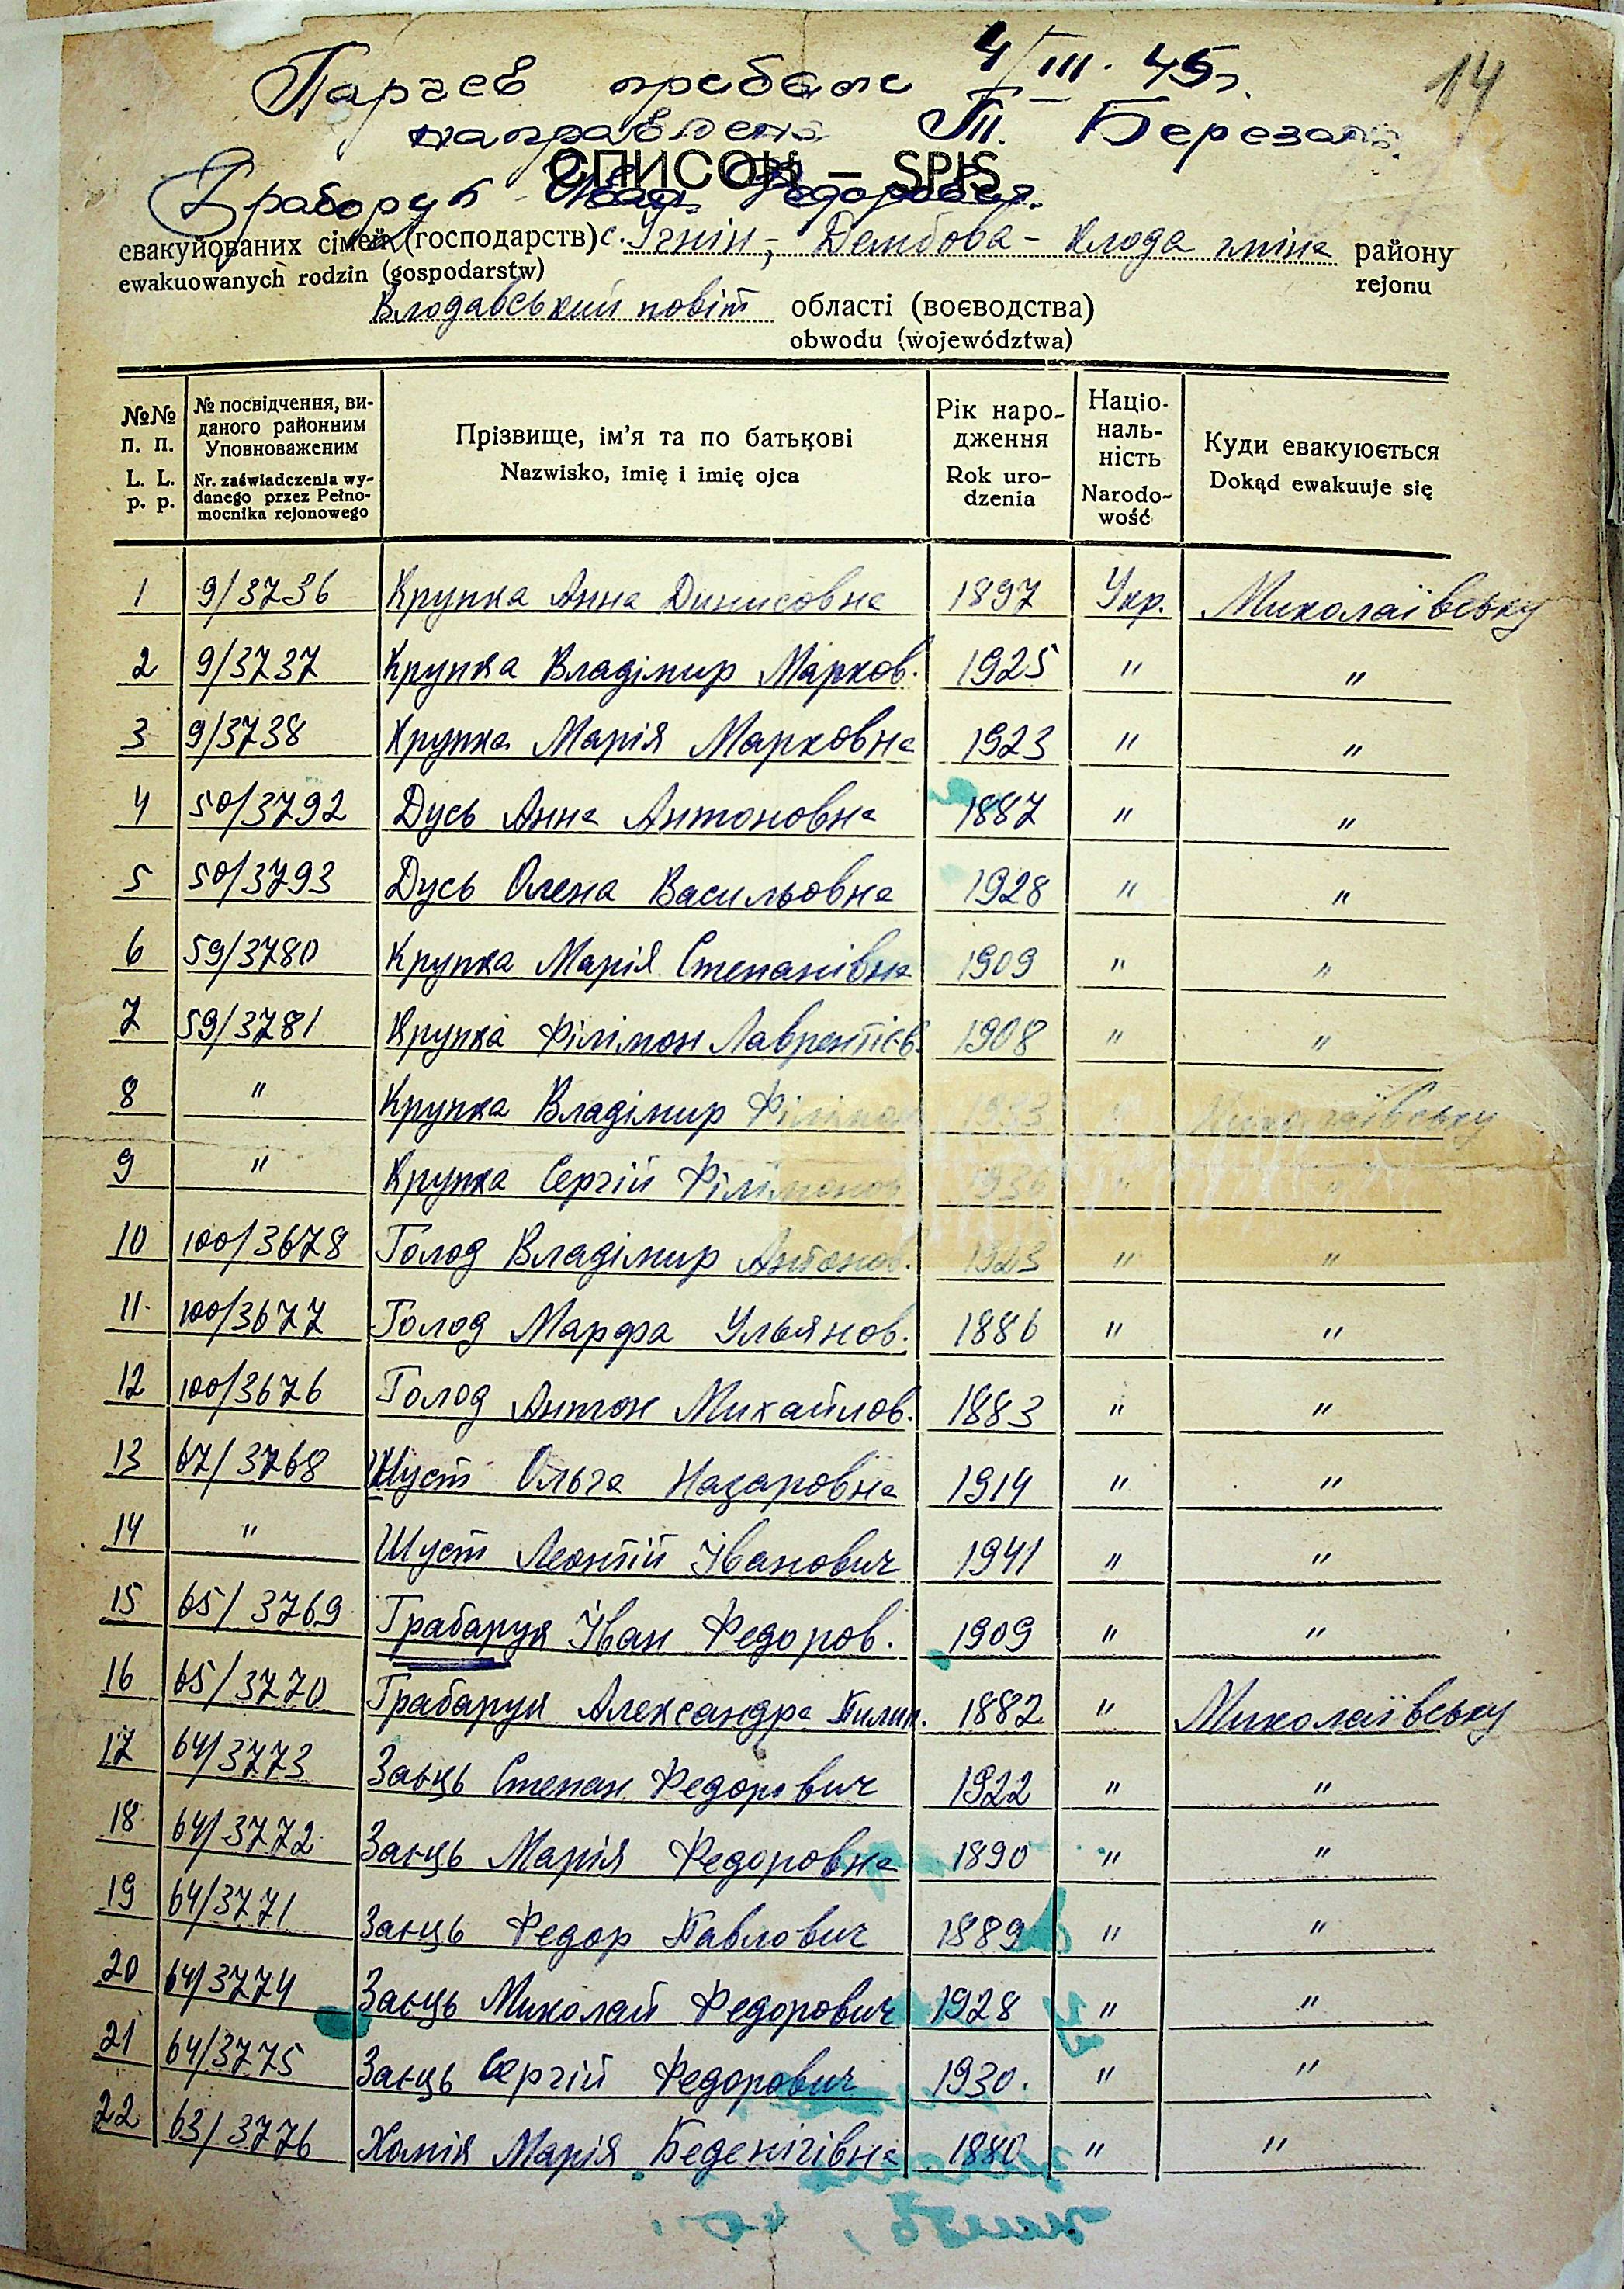 14
Парчев прибыт 4/III. 45г.
направлена ст. Березань.
СПИСОК — SPIS
Грабарук Иван Федорович.
евакуйованих сімей (господарств) с. Угнін, - Дембова - Клода гміна району
ewakuowanych rodzin (gospodarstw) rejonu
Влодавський повіт області (воєводства)
obwodu (województwa)
№№ п. п. L. L. p. p.
№ посвідчення, ви-
даного районним
Уповноваженим
Nr. zaświadczenia wy-
danego przez Pełno-
mocnika rejonowego
Прізвище, ім'я та по батькові
Nazwisko, imię i imię ojca
Рік наро-
дження
Rok uro-
dzenia
Націо-
наль-
ність
Narodo-
wość
Куди евакуюється
Dokąd ewakuuje się
1 9/3736 Крупка Анна Динисовна 1897 Укр. Миколаївську
2 9/3737 Крупка Владімир Марков. 1925 " "
3 9/3738 Крупка Марія Марковна 1923 " "
4 50/3792 Дусь Анна Антоновна 1887 " "
5 50/3793 Дусь Олена Васильовна 1928 " "
6 59/3780 Крупка Марія Степанівна 1909 " "
7 59/3781 Крупка Філімон Лаврентієв. 1908 " "
8 " Крупка Владімир Філімон 1933 " Миколаївську
9 " Крупка Сергій Філімонов 1936 " "
10 100/3678 Голод Владімир Антонов. 1923 " "
11. 100/3677 Голод Марфа Ульянов. 1886 " "
12 100/3676 Голод Антон Михайлов. 1883 " "
13 67/3768 Шуст Ольга Назаровна 1914 " "
14 " Шуст Леонтій Іванович 1941 " "
15 65/3769 Грабарук Іван Федоров. 1909 " "
16 65/3770 Грабарук Александра Пилип. 1882 " Миколаївську
17 64/3773 Заєць Степан Федорович 1922 " "
18 64/3772 Заєць Марія Федоровна 1890 " "
19 64/3771 Заєць Федор Павлович 1889 " "
20 64/3774 Заєць Миколай Федорович 1928 " "
21 64/3775 Заєць Сергій Федорович 1930. " "
22 63/3776 Хомік Марія Беденігівна 1880 " "